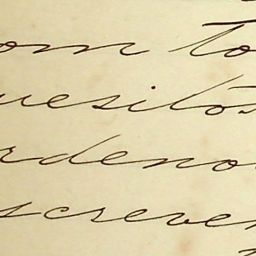 om to
uesitos
rdeno
screver